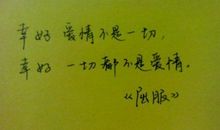 幸好爱情不是一切，
幸好一切都不是爱情。
《屈服》